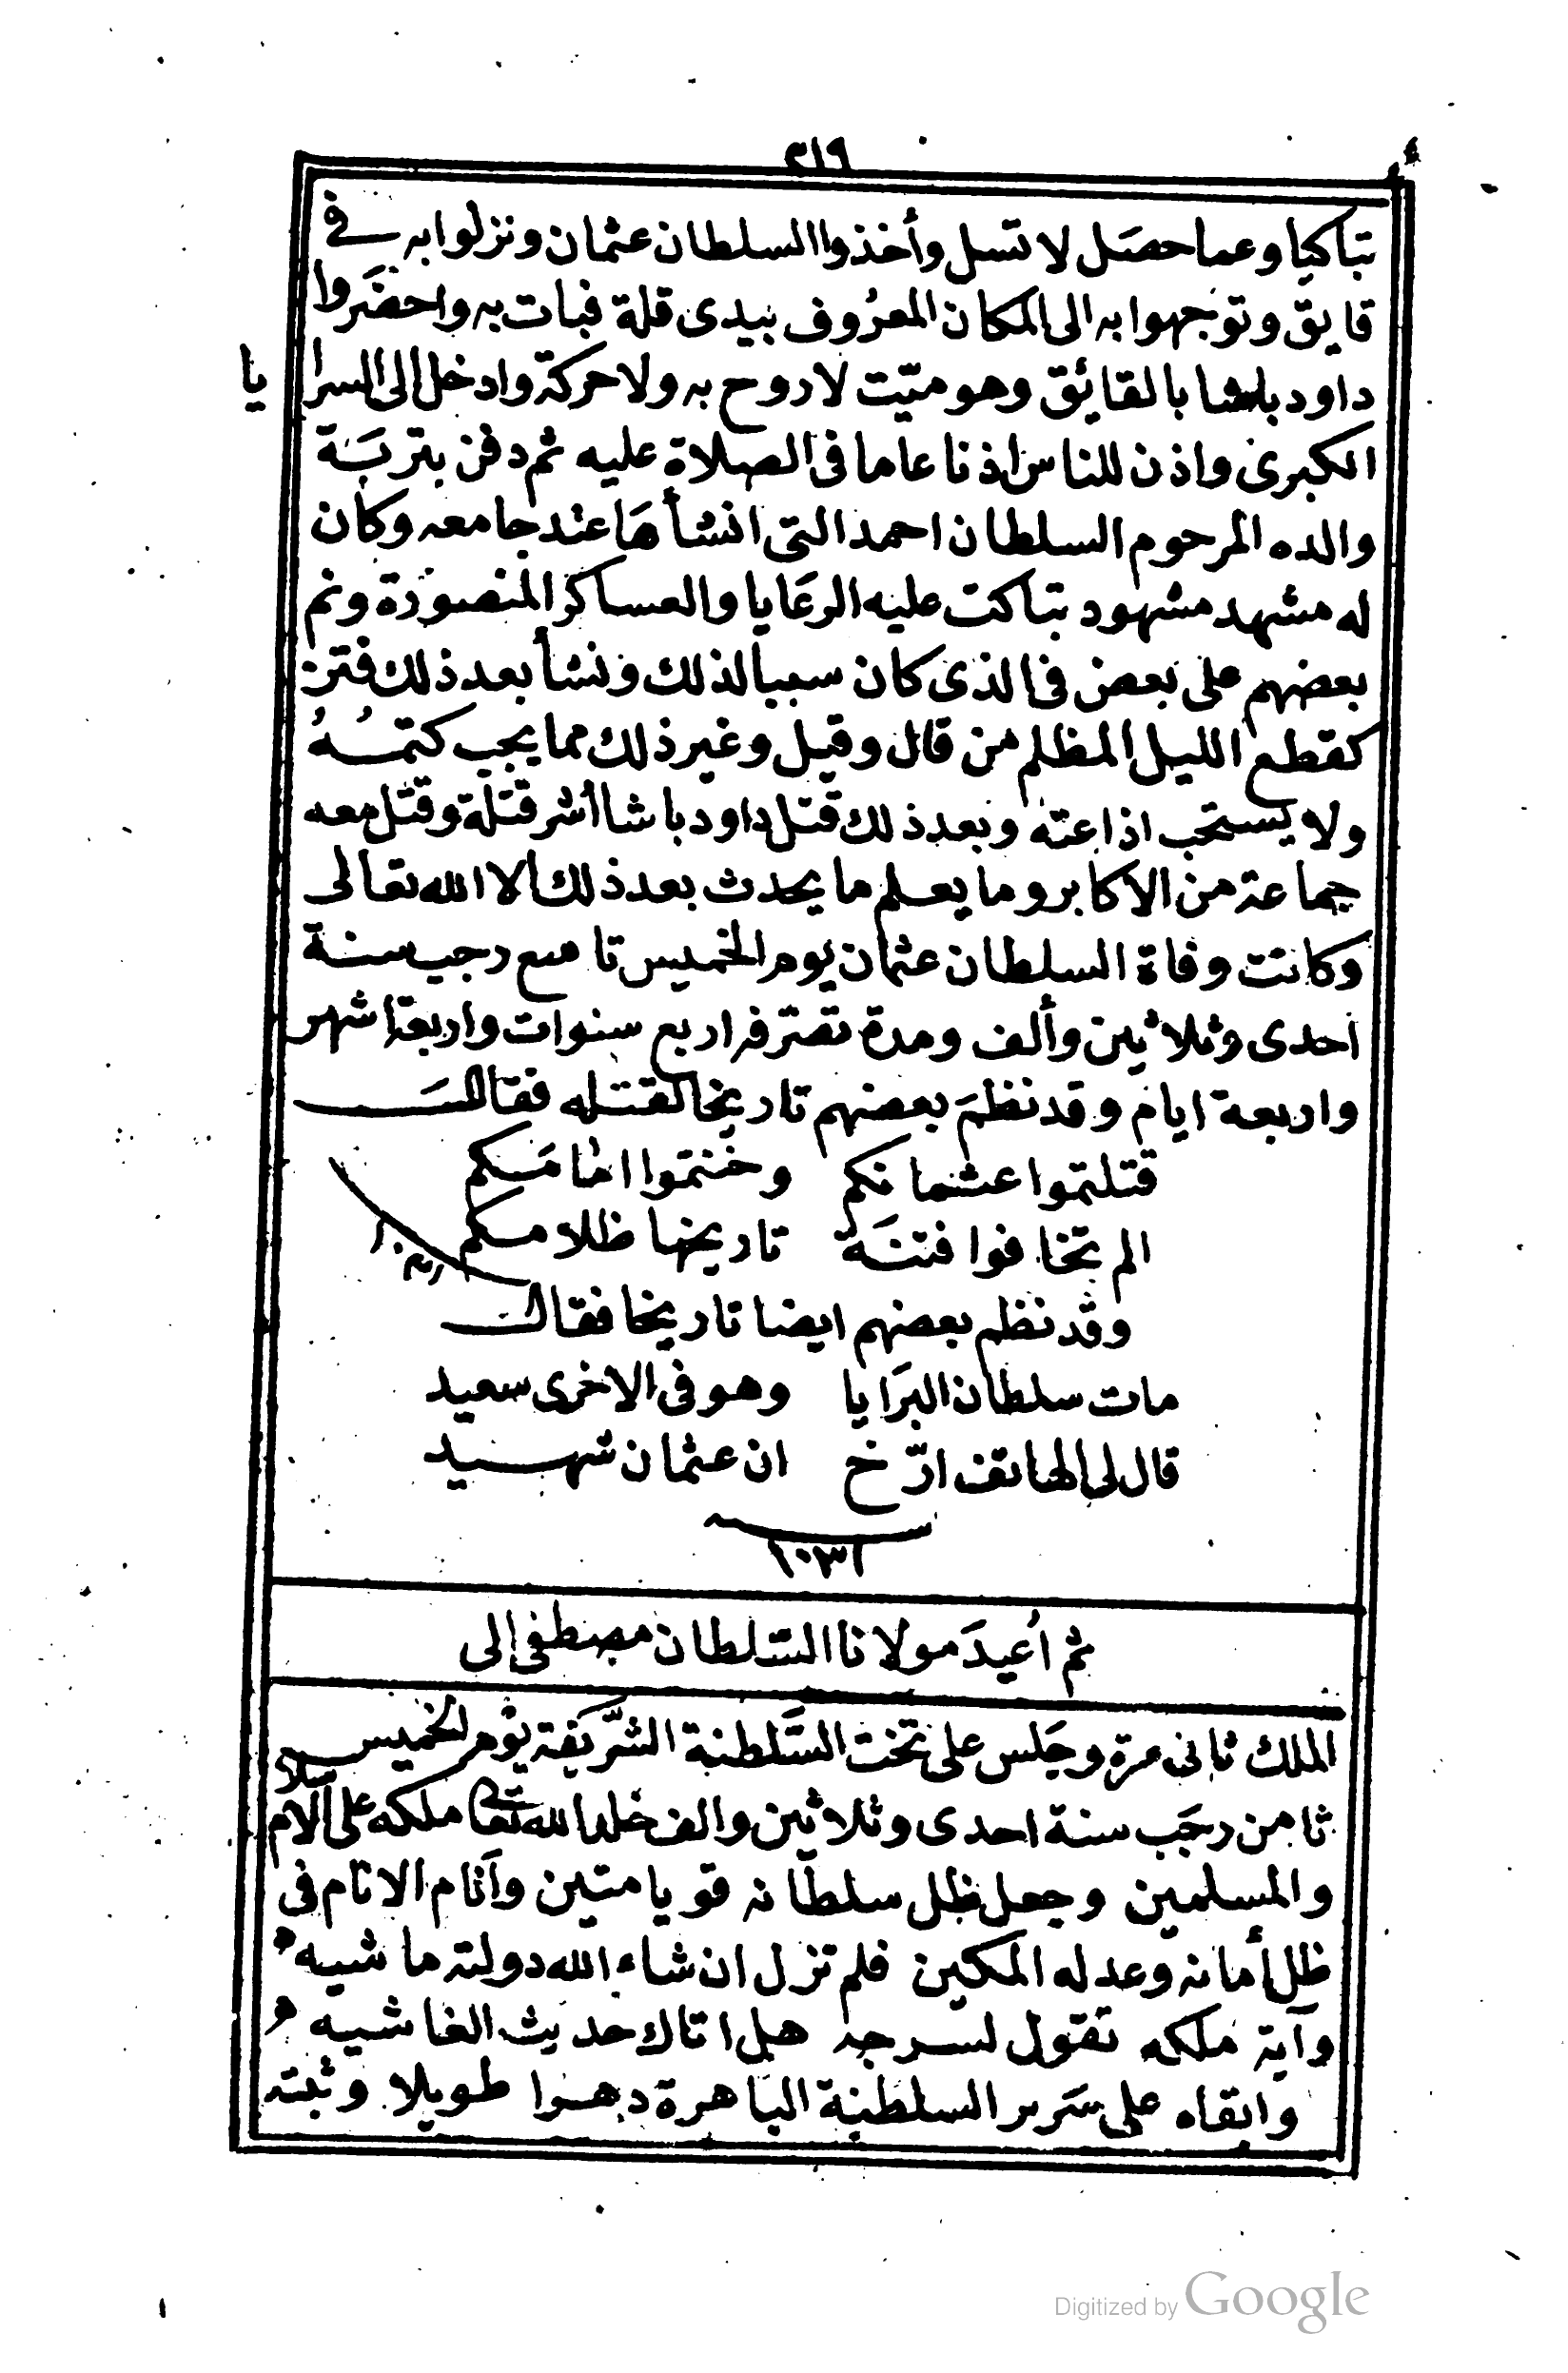 ٢١٩
تباكيا وعما حصل لا تسل وأخذوا السلطان عثمان ونزلوا به في
قايق وتوجهوا به الى المكان المعروف بيدى قلة فبات به واحضروا
داود باشا بالقائق وهو ميّت لا روح به ولا حركة وادخل الى السرايا
الكبرى واذن للناس اذنا عاما فى الصلاة عليه ثم دفن بتربة
والده المرحوم السلطان احمد التى انشأها عند جامعه وكان
له مشهد مشهود تباكت عليه الرعايا والعساكر المنصورة ونم
بعضهم على بعض فى الذى كان سببا لذلك ونشأ بعد ذلك فتن
كقطع الليل المظلم من قال وقيل وغير ذلك مما يجب كتمه
ولا يستحب اذاعته وبعد ذلك قتل داود باشا أشر قتلة وقتل معه
جماعة من الاكابر وما يعلم ما يحدث بعد ذلك الا الله تعالى
وكانت وفاة السلطان عثمان يوم الخميس تاسع رجب سنة
احدى وثلاثين وألف ومدة تصرفه اربع سنوات واربعة اشهر
واربعة ايام وقد نظم بعضهم تاريخا لقتله فقال
قتلتموا عثمانكم وخنتموا امامكم
الم تخافوا فتنة تاريخها ظلامكم
١٠٣١
وقد نظم بعضهم ايضا تاريخا فقال
مات سلطان البرايا وهو فى الاخرى سعيد
قال لى الهاتف ارّخ ان عثمان شهيد
١٠٣١
ثم أعيد مولانا السلطان مصطفى الى
الملك ثانى مرة وجلس على تخت السلطنة الشريفة يوم الخميس
ثامن رجب سنة احدى وثلاثين والف خلد الله تعالى ملكه على الاسلام
والمسلمين وجعل ظل سلطانه قويا متين وأنام الانام فى
ظل أمانه وعدله المكين فلم تزل ان شاء الله دولته ماشيه
وآية ملكه تقول لسرجه هل اتاك حديث الغاشيه
وابقاه على سرير السلطنة الباهرة دهرا طويلا وثبته
Digitized by Google